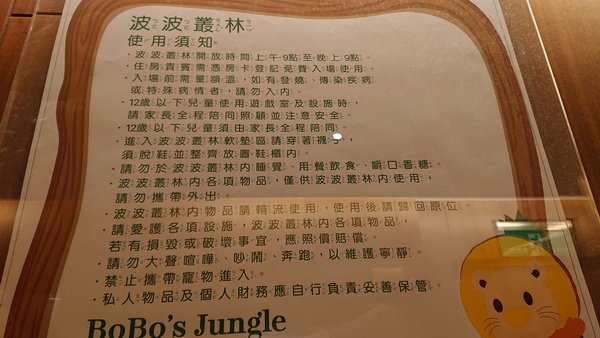 波波叢林
使用須知
・波波叢林開放時間上午9點至晚上9點。
・住房貴賓需憑房卡登記免費入場使用。
・入場前需量額溫，如有發燒、傳染疾病
或特殊病情者，請勿入內。
・12歲以下兒童使用遊戲室及設施時，
請家長全程陪同照顧並注意安全。
・12歲以下兒童須由家長全程陪同。
・進入波波叢林軟墊區請穿著襪子，
須脫鞋並整齊放置鞋櫃內。
・請勿於波波叢林內睡覺、用餐飲食、嚼口香糖。
・波波叢林內各項物品，僅供波波叢林內使用，
請勿攜帶外出。
・波波叢林內物品請輪流使用，使用後請歸回原位。
・請愛護各項設施，波波叢林內各項物品，
若有損毀或破壞事宜，應照價賠償。
・請勿大聲喧嘩、吵鬧、奔跑，以維護寧靜。
・禁止攜帶寵物進入。
・私人物品及個人財務應自行負責妥善保管。
BoBo's Jungle